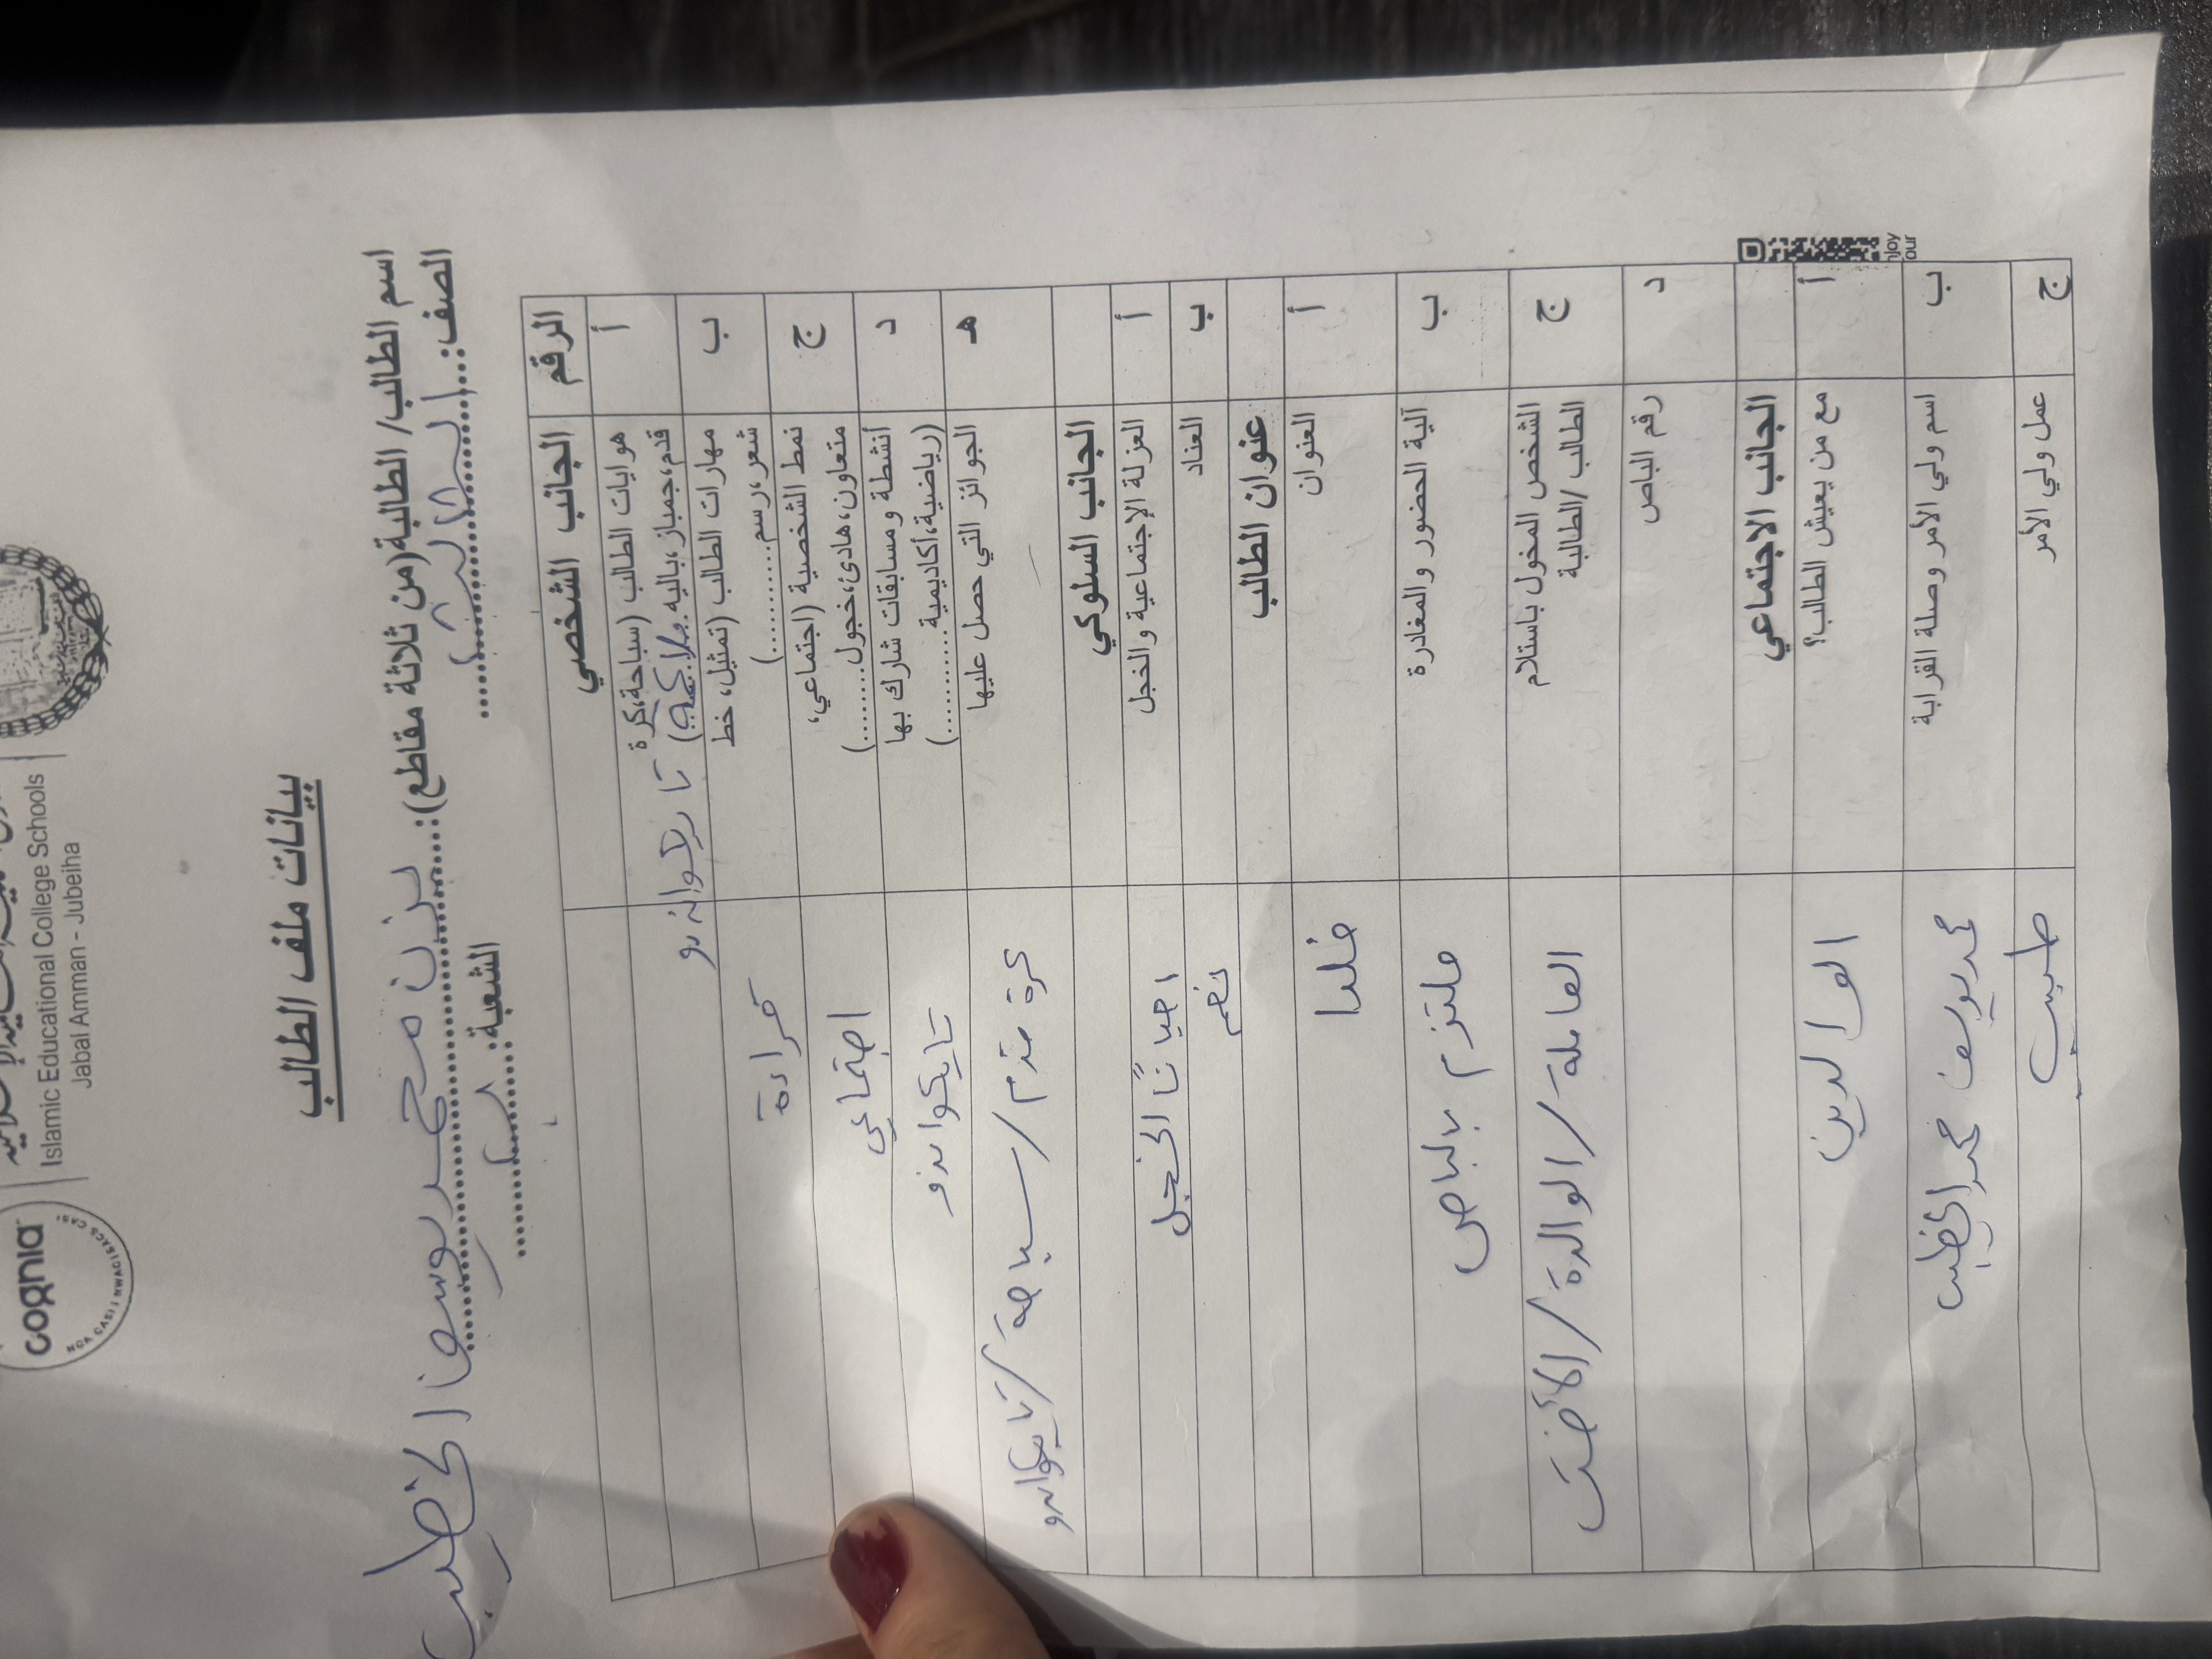 cognia
Islamic Educational College Schools
Jabal Amman - Jubeiha
بيانات ملف الطالب
اسم الطالب/ الطالبة(من ثلاثة مقاطع):.... يزن محمد يوسف الخطيب
الصف:... الثالث
الشعبة:
الرقم الجانب الشخصي
أ هوايات الطالب (سباحة،كرة
قدم،جمباز،باليه..ملاكمة..) تايكواندو
ب مهارات الطالب (تمثيل، خط
شعر،رسم............) قراءة
ج نمط الشخصية (اجتماعي،
متعاون،هادئ،خجول..........) اجتماعي
د أنشطة ومسابقات شارك بها
(رياضية،أكاديمية............) تايكواندو
هـ الجوائز التي حصل عليها كرة قدم/سباحة/تايكواندو
الجانب السلوكي
أ العزلة الإجتماعية والخجل احيانًا الخجل
ب العناد نعم
عنوان الطالب
أ العنوان خلدا
ب آلية الحضور والمغادرة ملتزم بالباص
ج الشخص المخول باستلام
الطالب/الطالبة العاملة/الوالدة/الأخت
د رقم الباص
الجانب الاجتماعي
أ مع من يعيش الطالب؟ الوالدين
ب اسم ولي الأمر وصلة القرابة محمد يوسف محمد الخطيب
ج عمل ولي الأمر طبيب